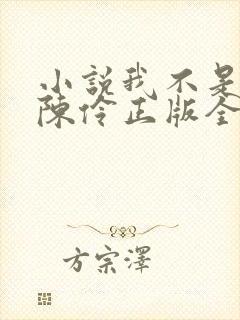 小說我不是
陳伶正版全
方宗澤